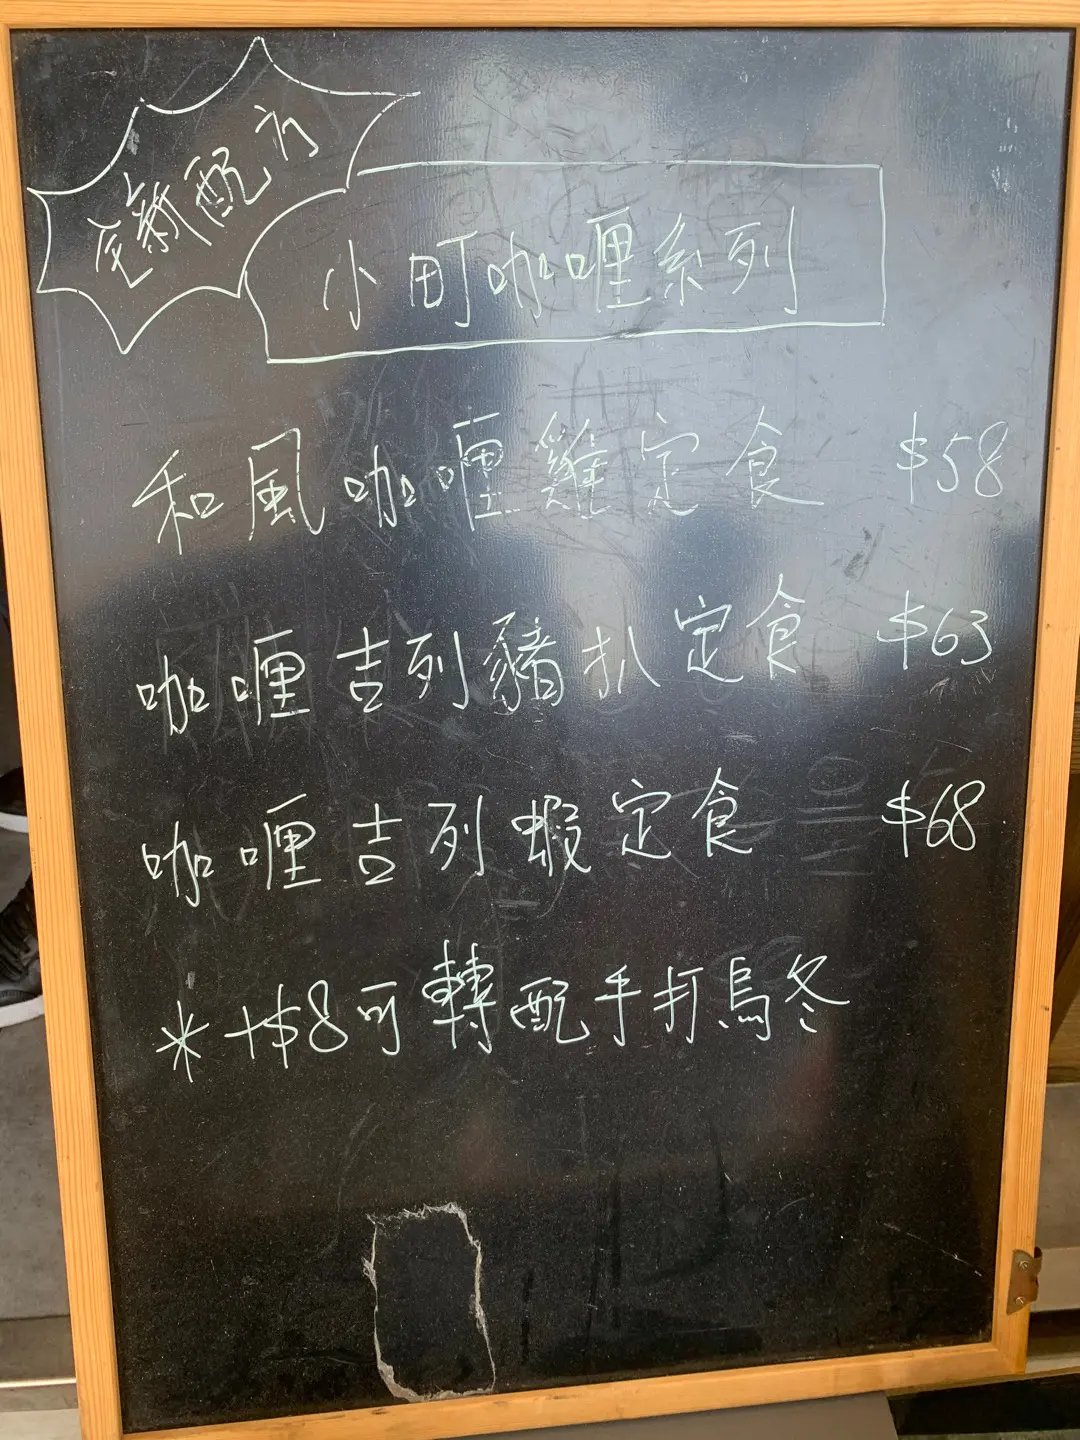 全新配方
小町咖喱系列
和風咖喱雞定食 $58
咖喱吉列豬扒定食 $63
咖喱吉列蝦定食 $68
*+$8可轉配手打烏冬